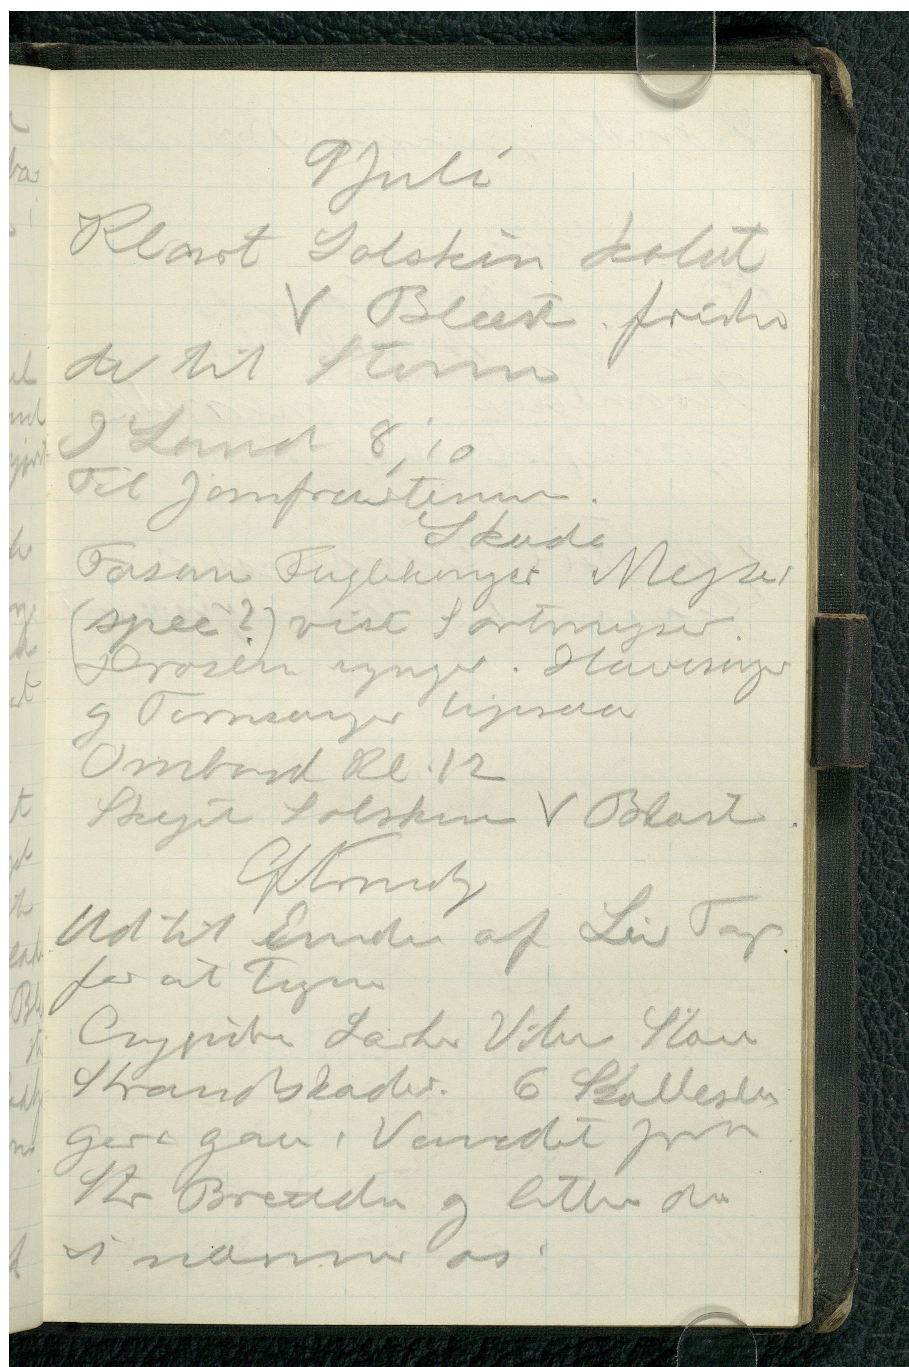 9 Juli
Klart Solskin skolet
V Blæst. friske
de til Storm
I Land 8,10
Til Jomfrustenen.
Skade
Fasan Fuglekonger Mejser
(spec?) vist Sortmejser.
Droslen synger. Havesanger
og Tornsanger ligesaa
Ombord Kl. 12
Skyet Solskin V Blæst.
Efterm
Ud til Enden af Lei Tap
for at tegne
Engpiber Lærker Viber Stære
Strandskader. 6 Skalleslu
gere gaa i Vandet fra
Str Bredden og letter da
vi nærmer os.